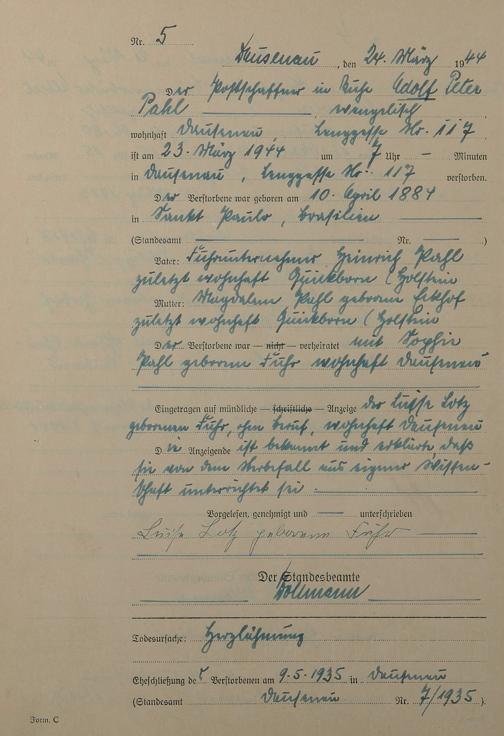 Nr. 5
Dausenau, den 24. März 1944
Der Postschaffner in Ruhe Adolf Peter
Pahl, evangelisch
wohnhaft Dausenau, Langgasse No. 117
ist am 23. März 1944 um 7 Uhr — Minuten
in Dausenau, Langgasse No. 117 verstorben.
Der Verstorbene war geboren am 10. April 1884
in Sankt Paulo, Brasilien
(Standesamt Nr. )
Vater: Fuhrunternehmer Heinrich Pahl
zuletzt wohnhaft Quickborn (Holstein
Mutter: Magdalena Pahl geborene
zuletzt wohnhaft Quickborn (Holstein
Der Verstorbene war — nicht — verheiratet mit Sophie
Pahl geborene Fuhr wohnhaft Dausenau
Eingetragen auf mündliche — schriftliche — Anzeige der Luise Lotz
geborenen Fuhr, ohne Beruf, wohnhaft Dausenau
Die Anzeigende ist bekannt und erklärte, daß
sie von dem Sterbefall aus eigner Wissen-
schaft unterrichtet sei.
Vorgelesen, genehmigt und — unterschrieben
Luise Lotz geborene Fuhr
Der Standesbeamte
Todesursache: Herzlähmung
Eheschließung des Verstorbenen am 9.5.1935 in Dausenau
(Standesamt Dausenau Nr. 7/1935).
Form. C